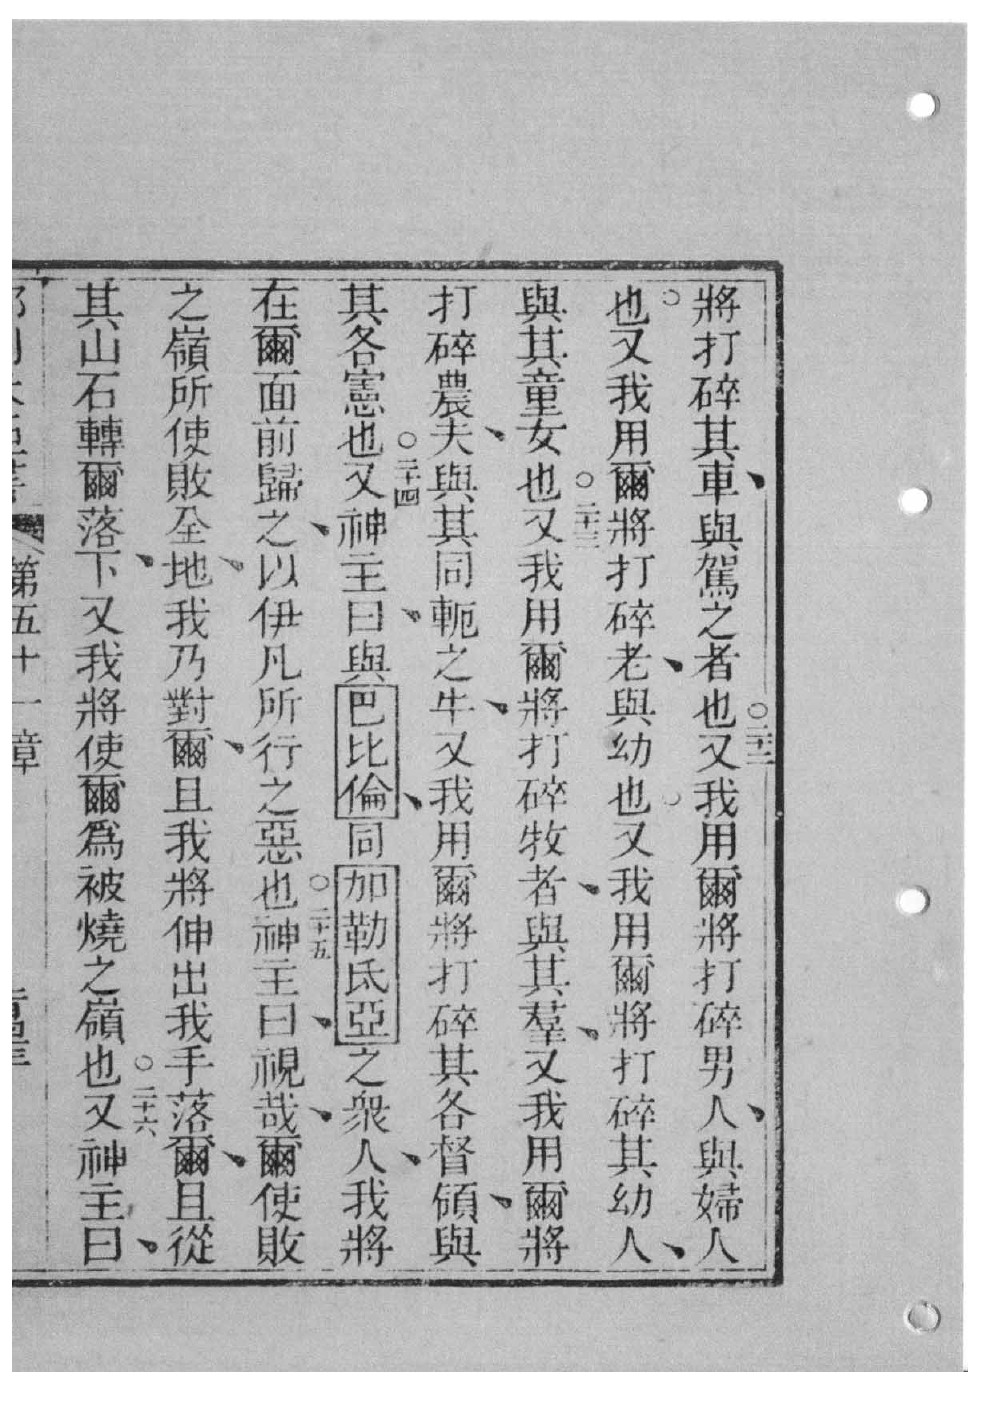 將打碎其車、與駕之者也○二十二又我用爾將打碎男人、與婦人
也○又我用爾將打碎老、與幼也○又我用爾將打碎其幼人、
與其童女也○二十三又我用爾將打碎牧者、與其羣、又我用爾將
打碎農夫、與其同軛之牛、又我用爾將打碎其各督領、與
其各憲也○二十四又神主曰、與巴比倫、同加勒氐亞之衆人、我將
在爾面前歸之、以伊凡所行之惡也○二十五神主曰、視哉、爾使敗
之嶺所使敗全地、我乃對爾、且我將伸出我手落爾、且從
其山石轉爾落下、又我將使爾爲被燒之嶺也○二十六又神主曰、
第五十一章